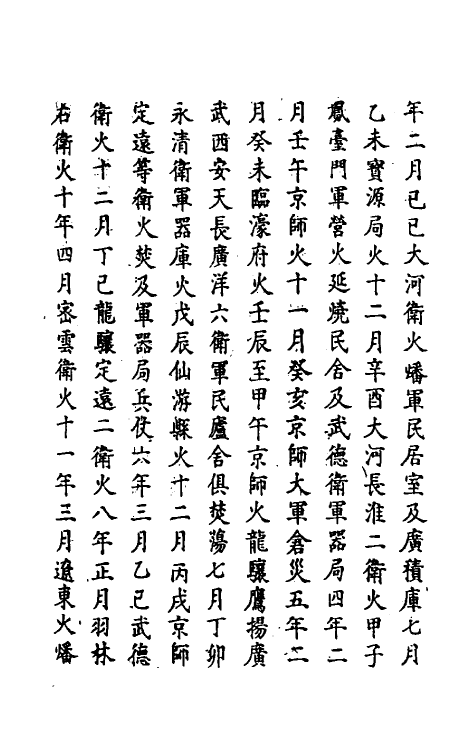 年二月已已大河衛火燔軍民居室及廣積庫七月
乙未寳源局火十二月辛酉大河長淮二衛火甲子
鳳臺門軍營火延燒民舍及武德衛軍器局四年二
月壬午京師火十一月癸亥京師大軍倉災五年二
月癸未臨濠府火壬辰至甲午京師火龍驤鷹揚廣
武西安天長廣洋六衛軍民廬舍俱焚蕩七月丁卯
永清衛軍器庫火戊辰仙游縣火十二月丙戌京師
定遠等衛火焚及軍器局兵仗六年三月乙已武德
衛火十二月丁已龍驤定遠二衛火八年正月羽林
右衛火十年四月宻雲衛火十一年三月遼東火燔